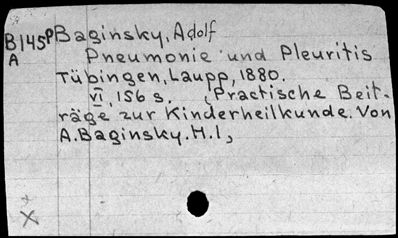 B145P Baginsky, Adolf
A Pneumonie und Pleuritis
Tübingen, Laupp, 1880.
VI, 156 s. , Practische Beit-
räge zur Kinderheilkunde. Von
A. Baginsky. H. 1,
X